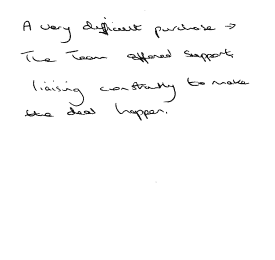 A very difficult purchase →
The Team offered support,
liaising constantly to make
the deal happen.